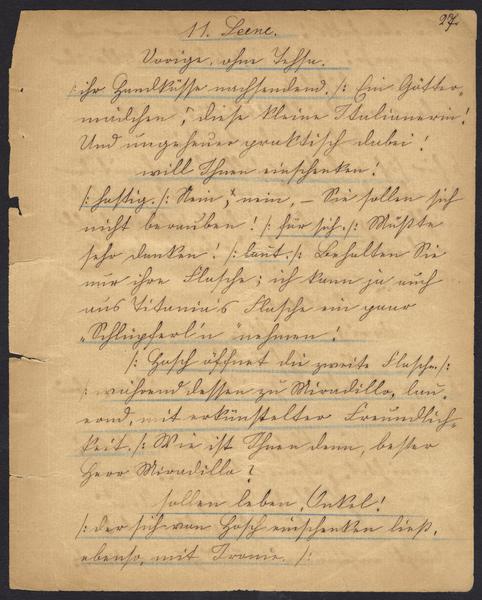 27.
11. Scene.
Vorige, ohne
/: ihr Handküsse nachsendend. :/ Ein Götter-
mädchen, diese kleine Italienerin!
Und ungeheuer praktisch dabei!
will Ihnen einschenken!
/: hastig. :/ Nein, nein, – Sie sollen sich
nicht berauben! /: für sich. :/ Müßte
sehr danken! /: laut. :/ Behalten Sie
nur ihre Flasche; ich kann ja auch
aus Titania's Flasche ein paar
„Schlüpferl'n" nehmen!
/: Hosch öffnet die zweite Flasche. :/
/: während dessen zu Miradillo, lau-
ernd, mit erkünstelter Freundlich-
keit. :/ Wie ist Ihnen denn, bester
Herr Miradillo?
sollen leben, Onkel!
/: der sich von Hosch einschenken ließ,
ebenso, mit Ironie. :/